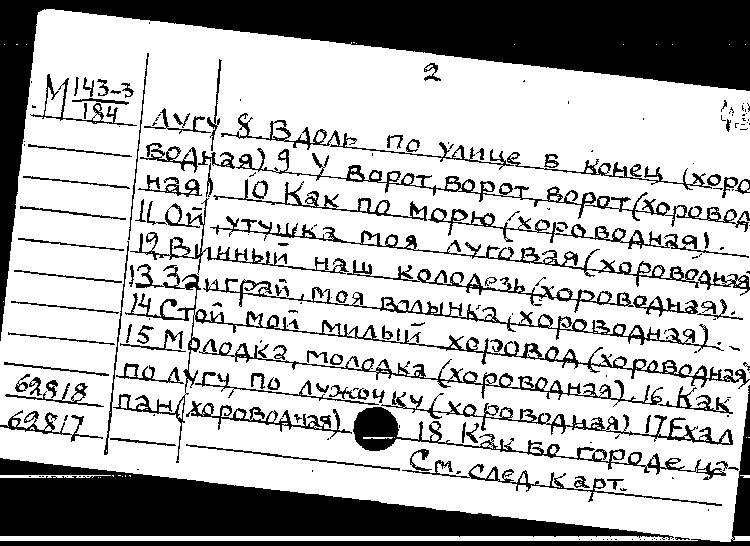 2
М 143-3
184
лугу 8 Вдоль по улице в конец (хоро
водная) 9 У ворот, ворот, ворот (хоровод
ная). 10 Как по морю (хороводная).
11. Ой, утушка моя луговая (хороводная
12. Винный наш колодезь (хороводная).
13 Заиграй, моя волынка (хороводная).
14. Стой, мой милый хоровод (хороводная)
15 Молодка, молодка (хороводная). 16. Как
по лугу, по лужочку (хороводная) 17 Ехал
пан (хороводная). 18. Как во городе ца-
См. след. карт.
62818
62817